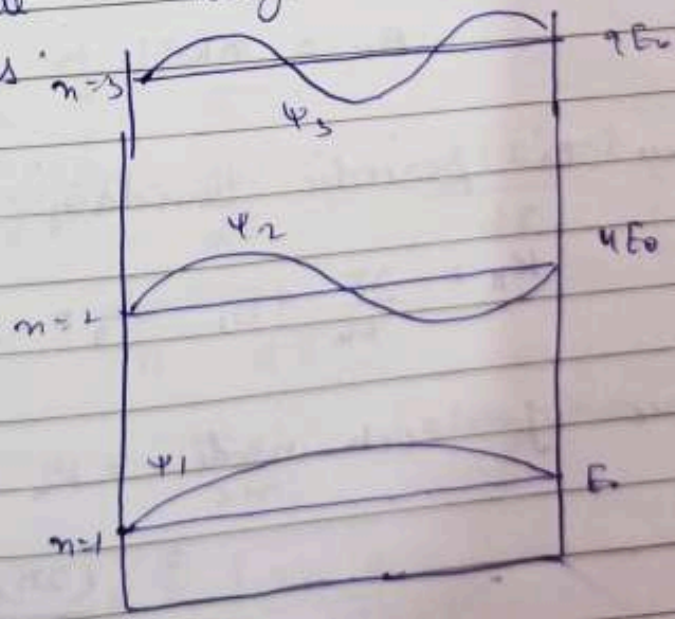 s
n=3 9E₀
ψ₃
ψ₂
4E₀
n=2
ψ₁
E₀
n=1